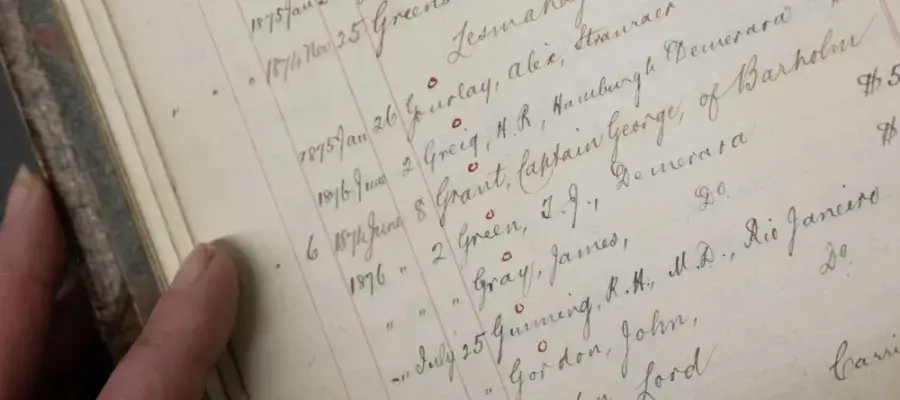 1875 Jan 2
" " " 1874 Nov 25 Greens
Lesmahag
1875 Jan 26 Gourlay, Alex, Stranraer
1876 June 2 Greig, H. R., Hamburgh Demerara
6 1874 June 8 Grant, Captain George, of Barholm $5
1876 " 2 Green, T. J., Demerara $
" " " Gray, James, Do.
" July 25 Gunning, R. H., M. D., Rio Janeiro
" Gordon, John, Do.
Lord Carri